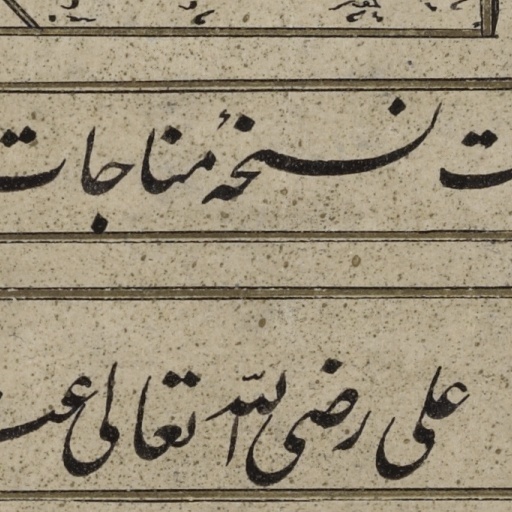 نسخهٔ مناجات
علی رضی الله تعالی